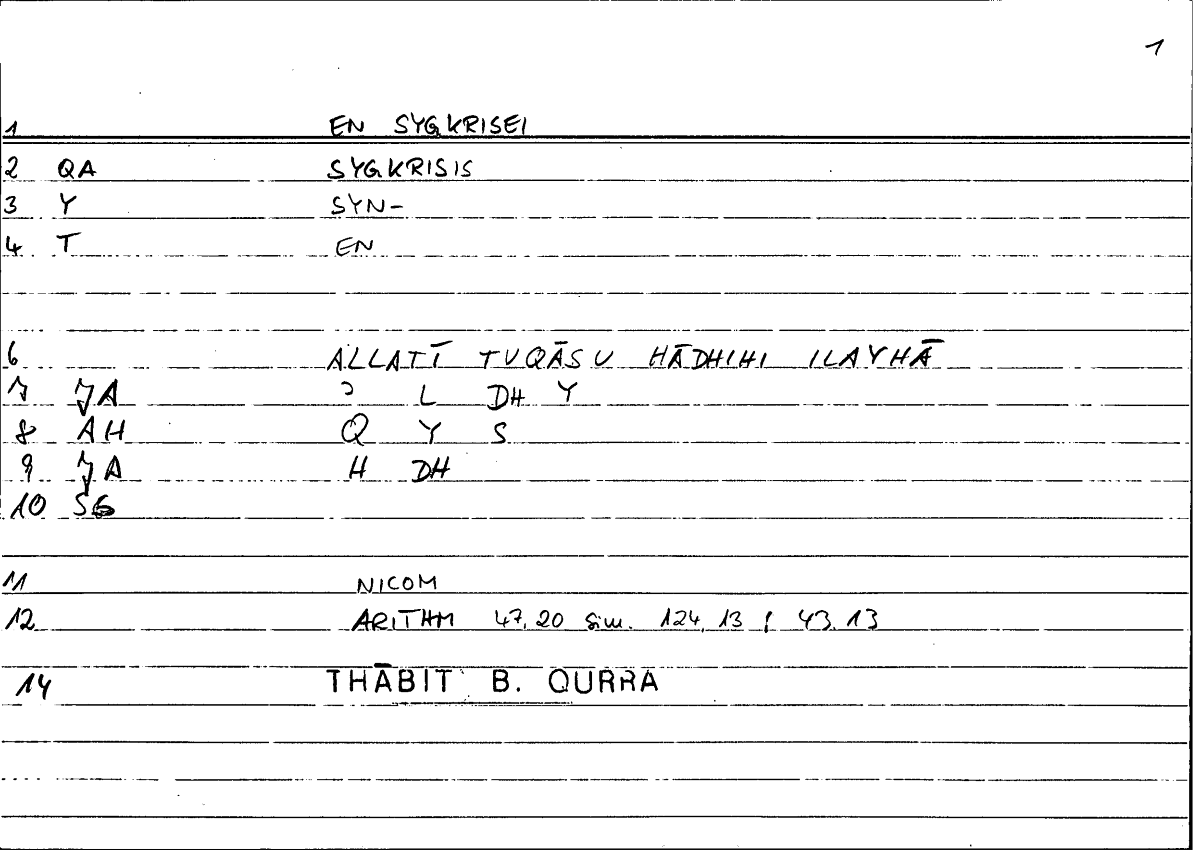 1
1 EN SYGKRISEI
2 QA SYGKRISIS
3 Y SYN-
4 T EN
6 ALLATĪ TUQĀSU HĀDHIHI ILAYHĀ
7 JA ʾ L DH Y
8 AH Q Y S
9 JA H DH
10 SG
11 NICOM
12 ARITHM 47,20 Sim. 124,13 ; 43.13
14 THĀBIT B. QURRA